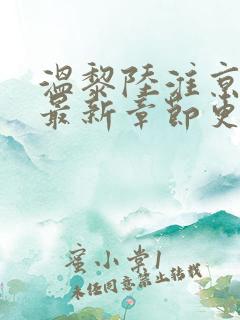 温黎陆淮京
最新章节更
蜜小棠1
未经同意禁止转载